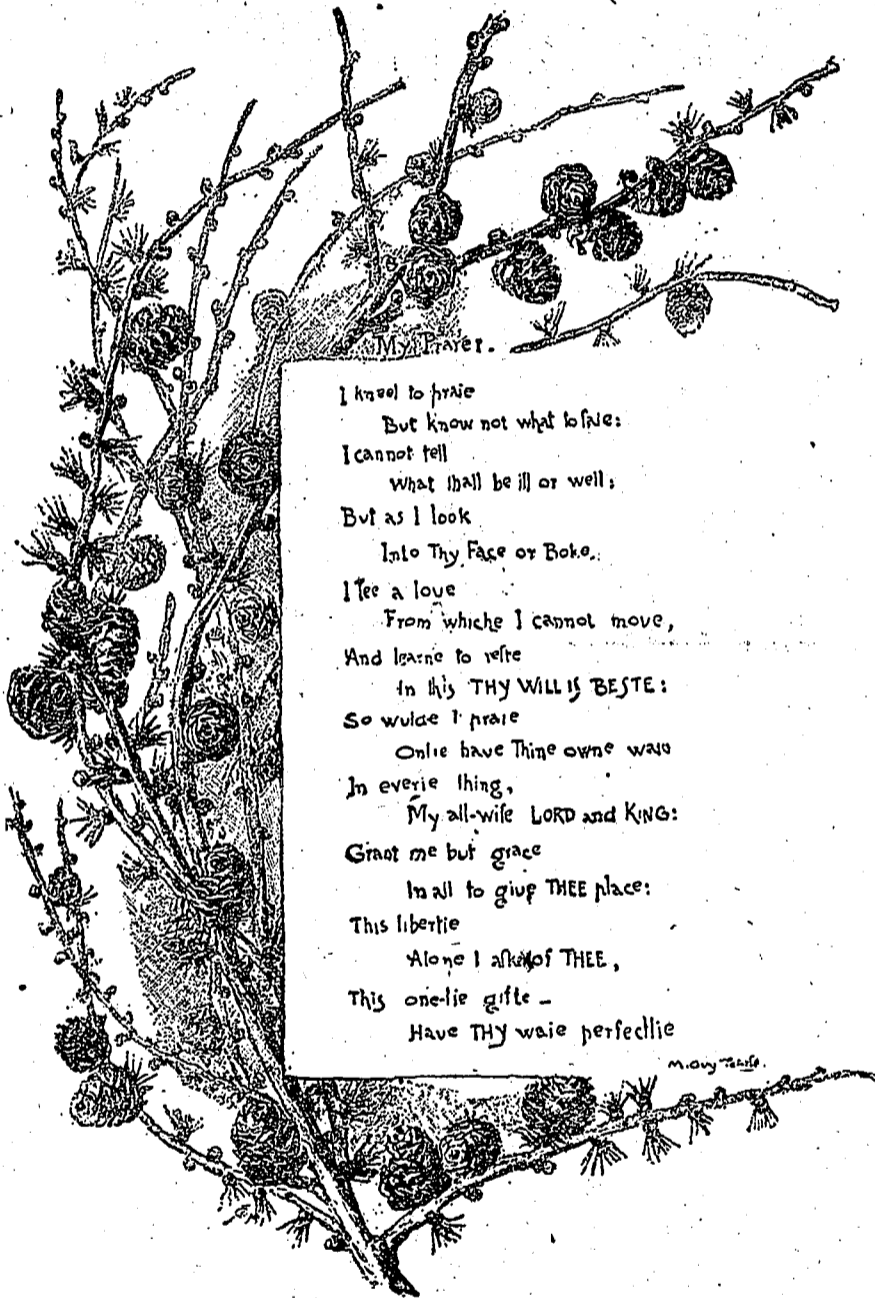 My Praier.
I kneel to praie
But know not what to saie:
I cannot tell
What shall be ill or well:
But as I look
Into Thy Face or Boke.
I see a love
From whiche I cannot move,
And learne to reste
In this THY WILL IS BESTE:
So wulde I praie
Onlie have Thine owne waie
In everie thing,
My all-wise LORD and KING:
Grant me but grace
In all to give THEE place:
This libertie
Alone I aske of THEE,
This one-lie gifte –
Have THY waie perfectlie
M. Guy